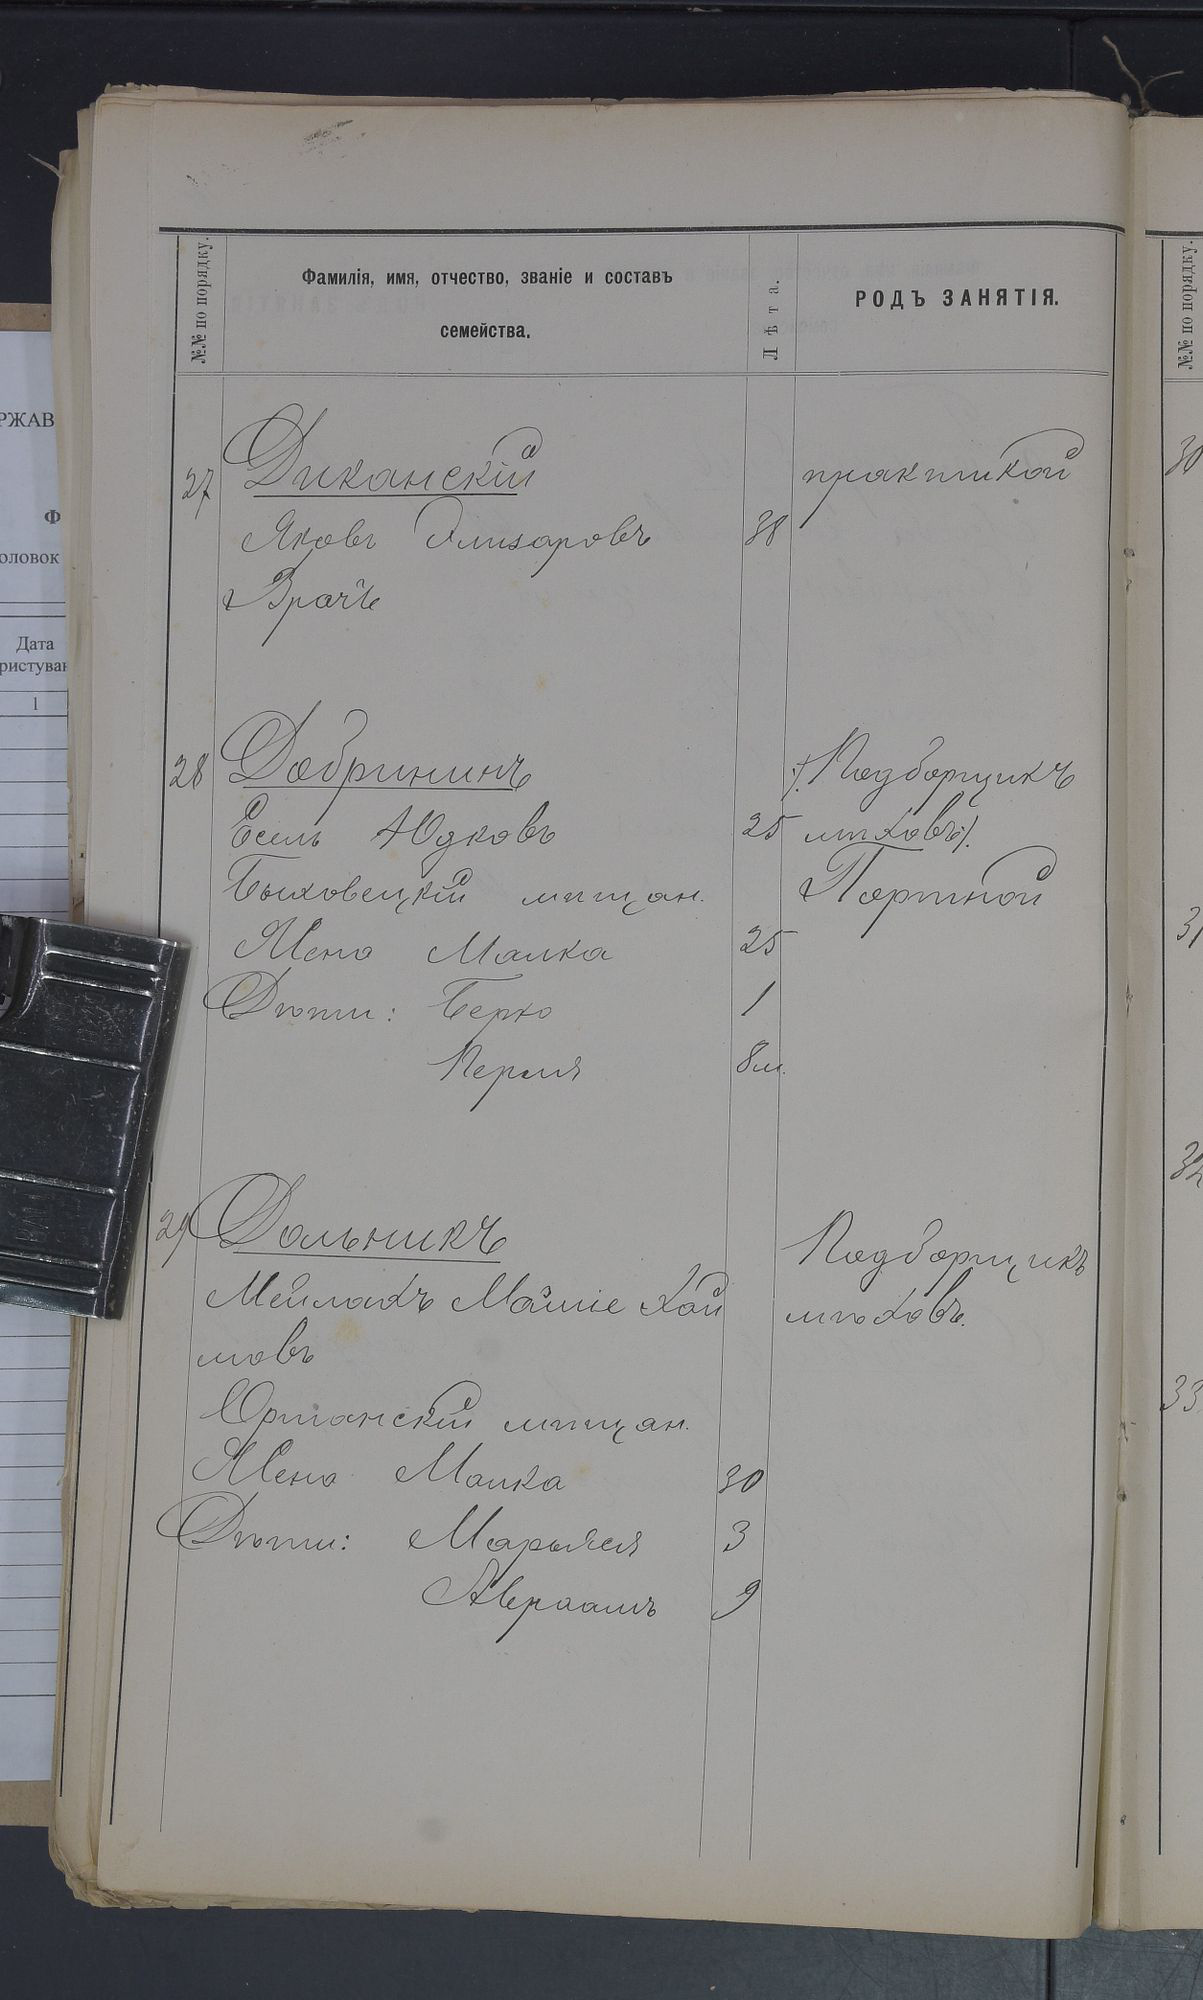 №№ по порядку.
Фамилія, имя, отчество, званіе и составъ
семейства.
Лѣта.
РОДЪ ЗАНЯТІЯ.
27 Диканскій практикой
Яковъ Элизаровъ 38
Врачъ
28 Добрининъ /Подборщикъ
Есель Юдковъ 25 мѣховъ/.
Быховецкій мѣщан. Портной
Жена Малка 25
Дѣти: Берко 1
Перля 8м.
29 Дольникъ Подборщикъ
Мейлахъ Мойше Хай мѣховъ.
мовъ
Оршанскій мѣщан.
Жена Малка 30
Дѣти: Марьяся 3
Авраамъ 9
№№ по порядку.
30
31
32
33
РЖАВ
Ф
оловок
Дата
ристуван
1